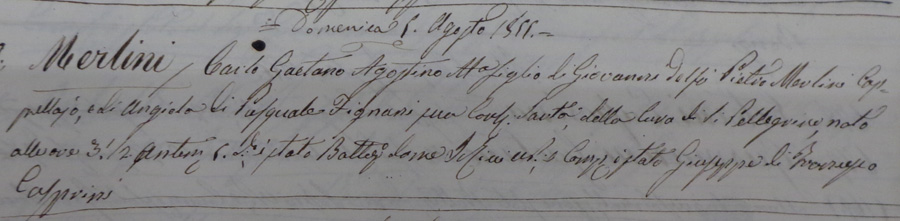 Domenica 5. Agosto 1855.=
Merlini / Carlo Gaetano Agostino figlio di Giovanni del fù Pietro Merlini Cap-
pellajo, e di Angiola di Pasquale Fignani sua Cons. della Cura di S. Pellegrino, nato
alle ore 3. 1/2 antem 5. dº. è stato Battezº da me Comp. è stato Giuseppe di Francesco
Casprini